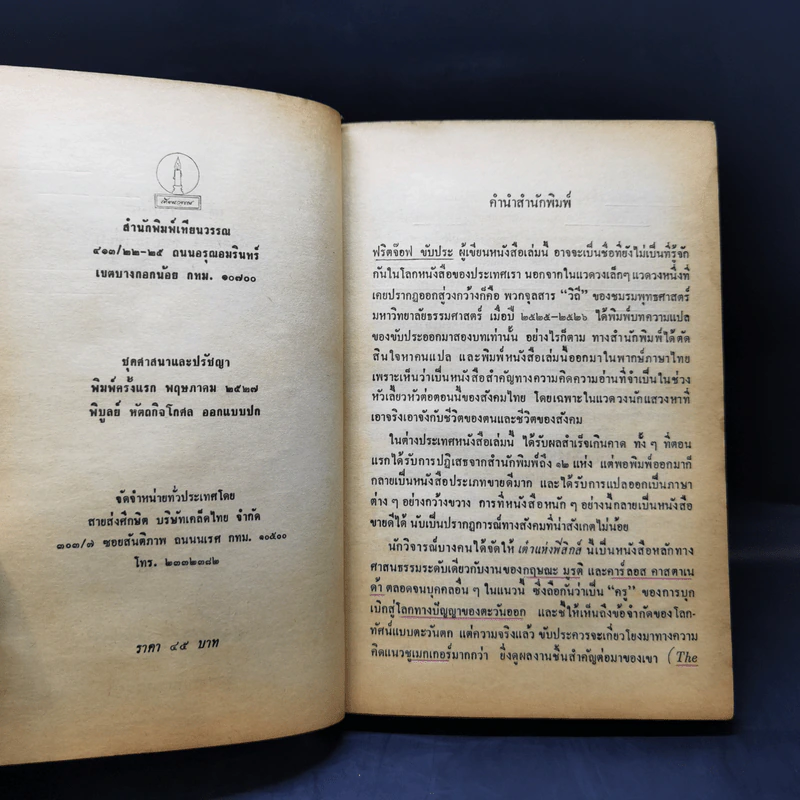 เทียนวรรณ
สำนักพิมพ์เทียนวรรณ
๔๑๓/๒๒-๒๕ ถนนอรุณอมรินทร์
เขตบางกอกน้อย กทม. ๑๐๗๐๐
ชุดศาสนาและปรัชญา
พิมพ์ครั้งแรก พฤษภาคม ๒๕๒๗
พิบูลย์ หัตถกิจโกศล ออกแบบปก
จัดจำหน่ายทั่วประเทศโดย
สายส่งศึกษิต บริษัทเคล็ดไทย จำกัด
๓๐๓/๗ ซอยสันติภาพ ถนนนเรศ กทม. ๑๐๕๐๐
โทร. ๒๓๓๒๓๘๒
ราคา ๔๕ บาท
คำนำสำนักพิมพ์
ฟริตจ๊อฟ ขับประ ผู้เขียนหนังสือเล่มนี้ อาจจะเป็นชื่อที่ยังไม่เป็นที่รู้จัก
กันในโลกหนังสือของประเทศเรา นอกจากในแวดวงเล็กๆ แวดวงหนึ่งที่
เคยปรากฏออกสู่วงกว้างก็คือ พวกจุลสาร “วิถี” ของชมรมพุทธศาสตร์
มหาวิทยาลัยธรรมศาสตร์ เมื่อปี ๒๕๒๕-๒๕๒๖ ได้พิมพ์บทความแปล
ของขับประออกมาสองบทเท่านั้น อย่างไรก็ตาม ทางสำนักพิมพ์ได้ตัด
สินใจหาคนแปล และพิมพ์หนังสือเล่มนี้ออกมาในพากษ์ภาษาไทย
เพราะเห็นว่าเป็นหนังสือสำคัญทางความคิดความอ่านที่จำเป็นในช่วง
หัวเลี้ยวหัวต่อตอนนี้ของสังคมไทย โดยเฉพาะในแวดวงนักแสวงหาที่
เอาจริงเอาจังกับชีวิตของตนและชีวิตของสังคม
ในต่างประเทศหนังสือเล่มนี้ ได้รับผลสำเร็จเกินคาด ทั้ง ๆ ที่ตอน
แรกได้รับการปฏิเสธจากสำนักพิมพ์ถึง ๑๒ แห่ง แต่พอพิมพ์ออกมาก็
กลายเป็นหนังสือประเภทขายดีมาก และได้รับการแปลออกเป็นภาษา
ต่าง ๆ อย่างกว้างขวาง การที่หนังสือหนัก ๆ อย่างนี้กลายเป็นหนังสือ
ขายดีได้ นับเป็นปรากฏการณ์ทางสังคมที่น่าสังเกตไม่น้อย
นักวิจารณ์บางคนได้จัดให้ เต๋าแห่งฟิสิกส์ นี้เป็นหนังสือหลักทาง
ศาสนธรรมระดับเดียวกับงานของกฤษณะ มูรติ และคาร์ลอส คาสตาเน
ด้า ตลอดจนบุคคลอื่น ๆ ในแนวนี้ ซึ่งถือกันว่าเป็น “ครู” ของการบุก
เบิกสู่โลกทางปัญญาของตะวันออก และชี้ให้เห็นถึงข้อจำกัดของโลก-
ทัศน์แบบตะวันตก แต่ความจริงแล้ว ขับประควรจะเกี่ยวโยงมาทางความ
คิดแนวชูเมกเกอร์มากกว่า ยิ่งดูผลงานชิ้นสำคัญต่อมาของเขา (The